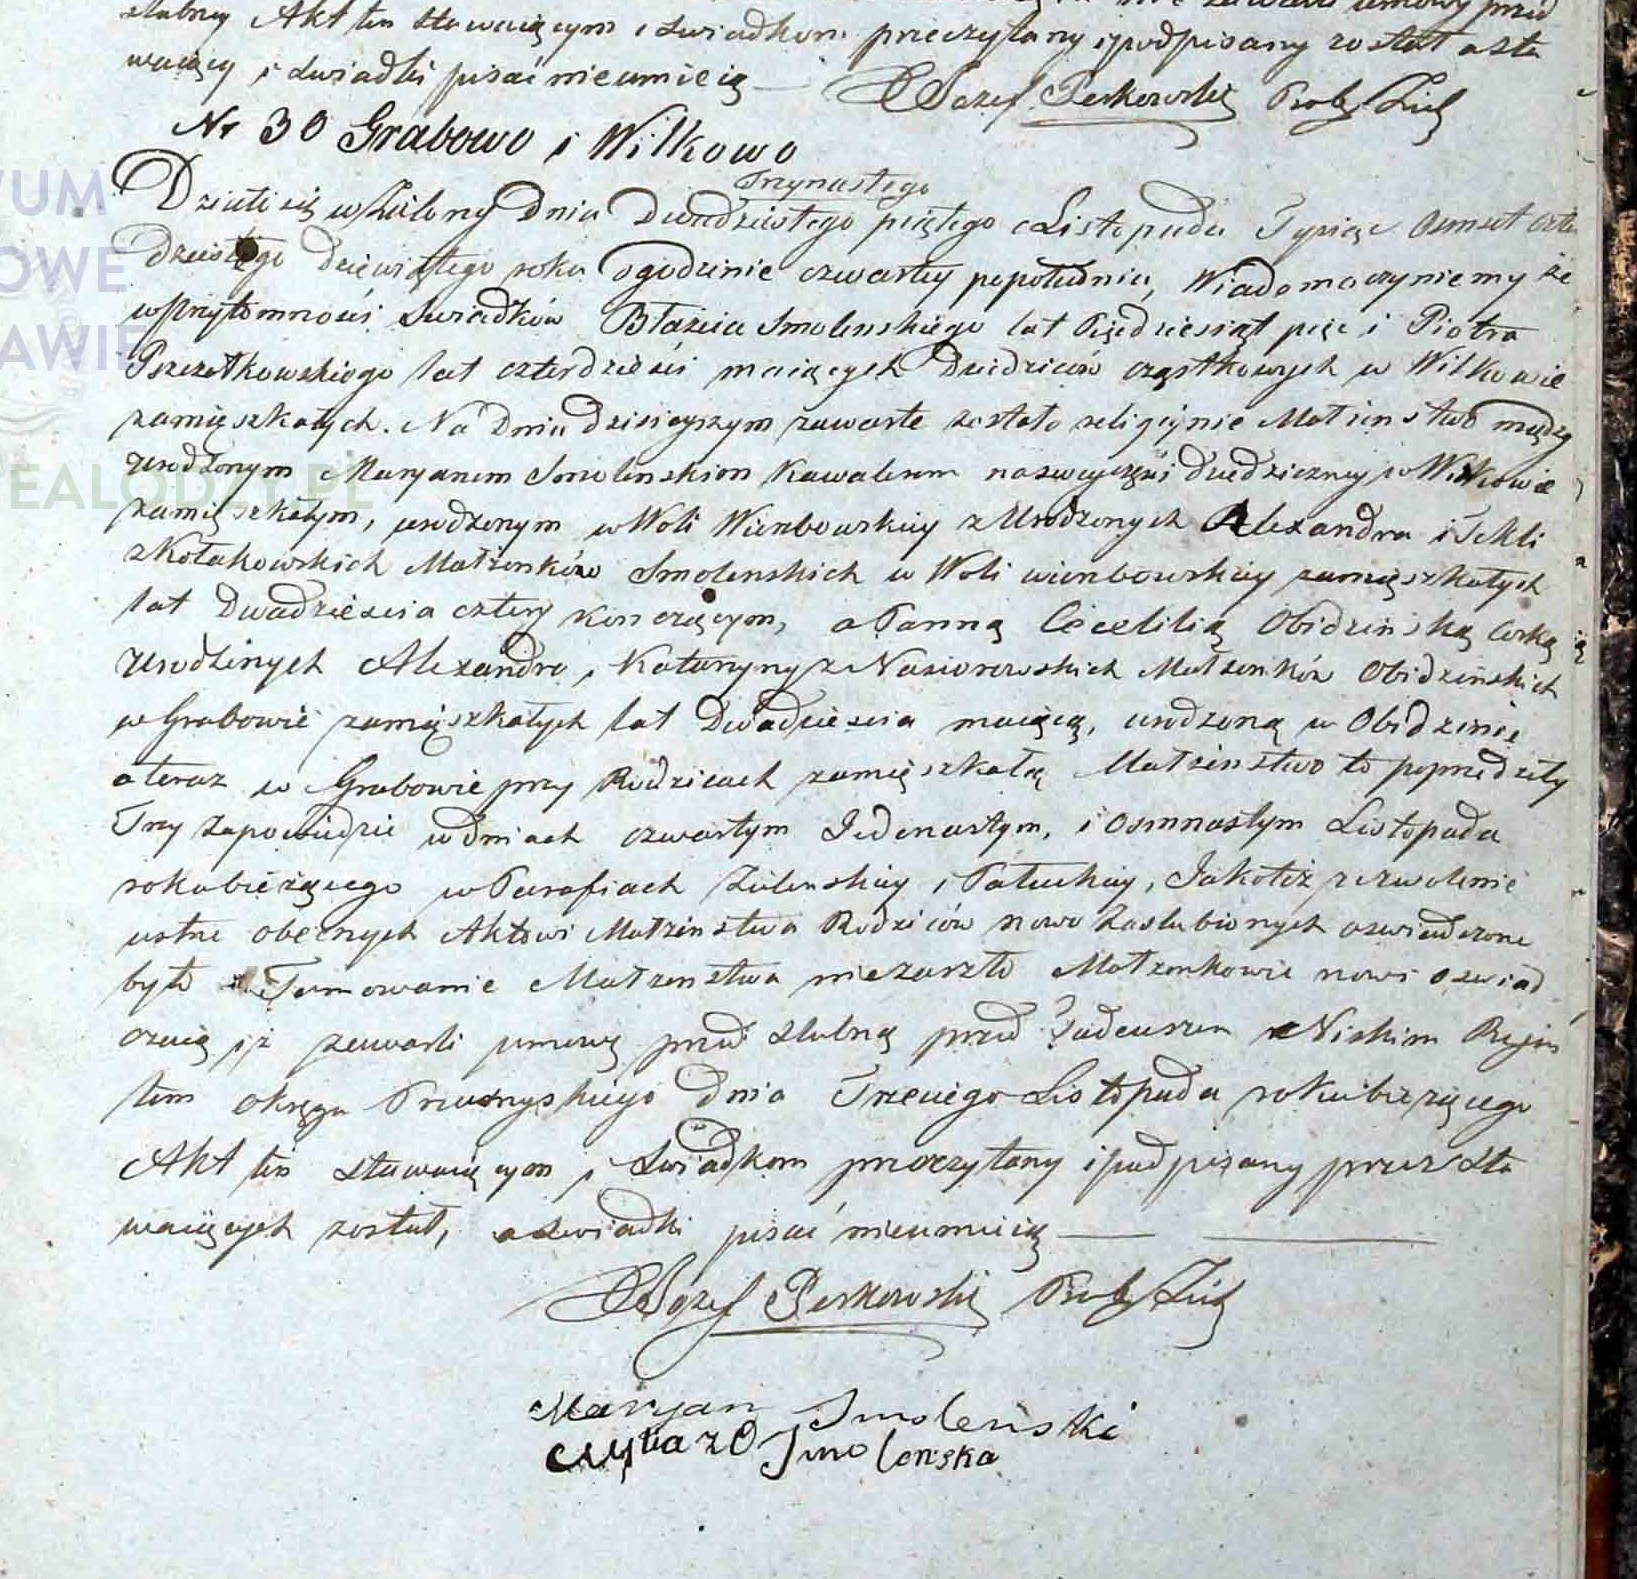 ślubnej Akt ten stawaiącym i świadkom przeczytany i podpisany został a sta
waiący i świadki pisać nieumieią — X Jozef Perkowski Prob Ziel
Nr 30 Grabowo i Wilkowo
Trzynastego
Działo się w Zielony Dnia Dwudziestego piątego Listopada Tysiąc Osmset czter
dziestego dziewiątego roku o godzinie czwartey popołudniu, Wiadomo czyniemy że
w przytomności świadków Błażeia Smolenskiego lat Pięćdziesiąt pięć i Piotra
Pszczotkowskiego lat czterdzieści maiących Dziedziców cząstkowych w Wilkowie
zamięszkałych. Na Dniu dzisieyszym zawarte zostało religijnie Małżenstwo między
Urodzonym Maryanem Smolenskiem Kawalerem na swey części dziedziczney w Wilkowie
zamięszkałym, urodzonym w Woli Wierzbowskiey z Urodzonych Alexandra i Tekli
z Kołakowskich Małżonków Smolenskich w Woli wierzbowskiey zamięszkałych
lat Dwadzieścia cztery konczącym, a Panną Cecelilią Obidzińską Corką
Urodzonych Alexandra i Katarzyny z Nasiorowskich Małżonków Obidzińskich
w Grabowie zamięszkałych lat Dwadzieścia maiącą, urodzoną w Obidzinie
a teraz w Grabowie przy Rodzicach zamięszkałą Małżenstwo to poprzedziły
Trzy Zapowiedzie w dniach czwartym Jedenastym, i Osmnastym Listopada
roku bieżącego w Parafiach Zielenskiey i Pałuckiey, Jakoteż zezwolenie
ustne obecnych Aktowi Małżenstwa Rodziców nowo Zaslubionych oswiadczone
było Tamowanie Małżenstwa niezaszło Małżonkowie nowi oswiad
czaią iż zawarli umowę przed slubną przed Tadeuszem Niskim Rejen
tem okręgu Przasnyskiego dnia Trzeciego Listopada roku bieżącego
Akt ten stawaiącym i świadkom przeczytany i podpisany przez sta
waiących został, a świadki pisać nieumieią —
X Jozef Perkowski Prob Ziel
Maryan Smoleński
Smolenska